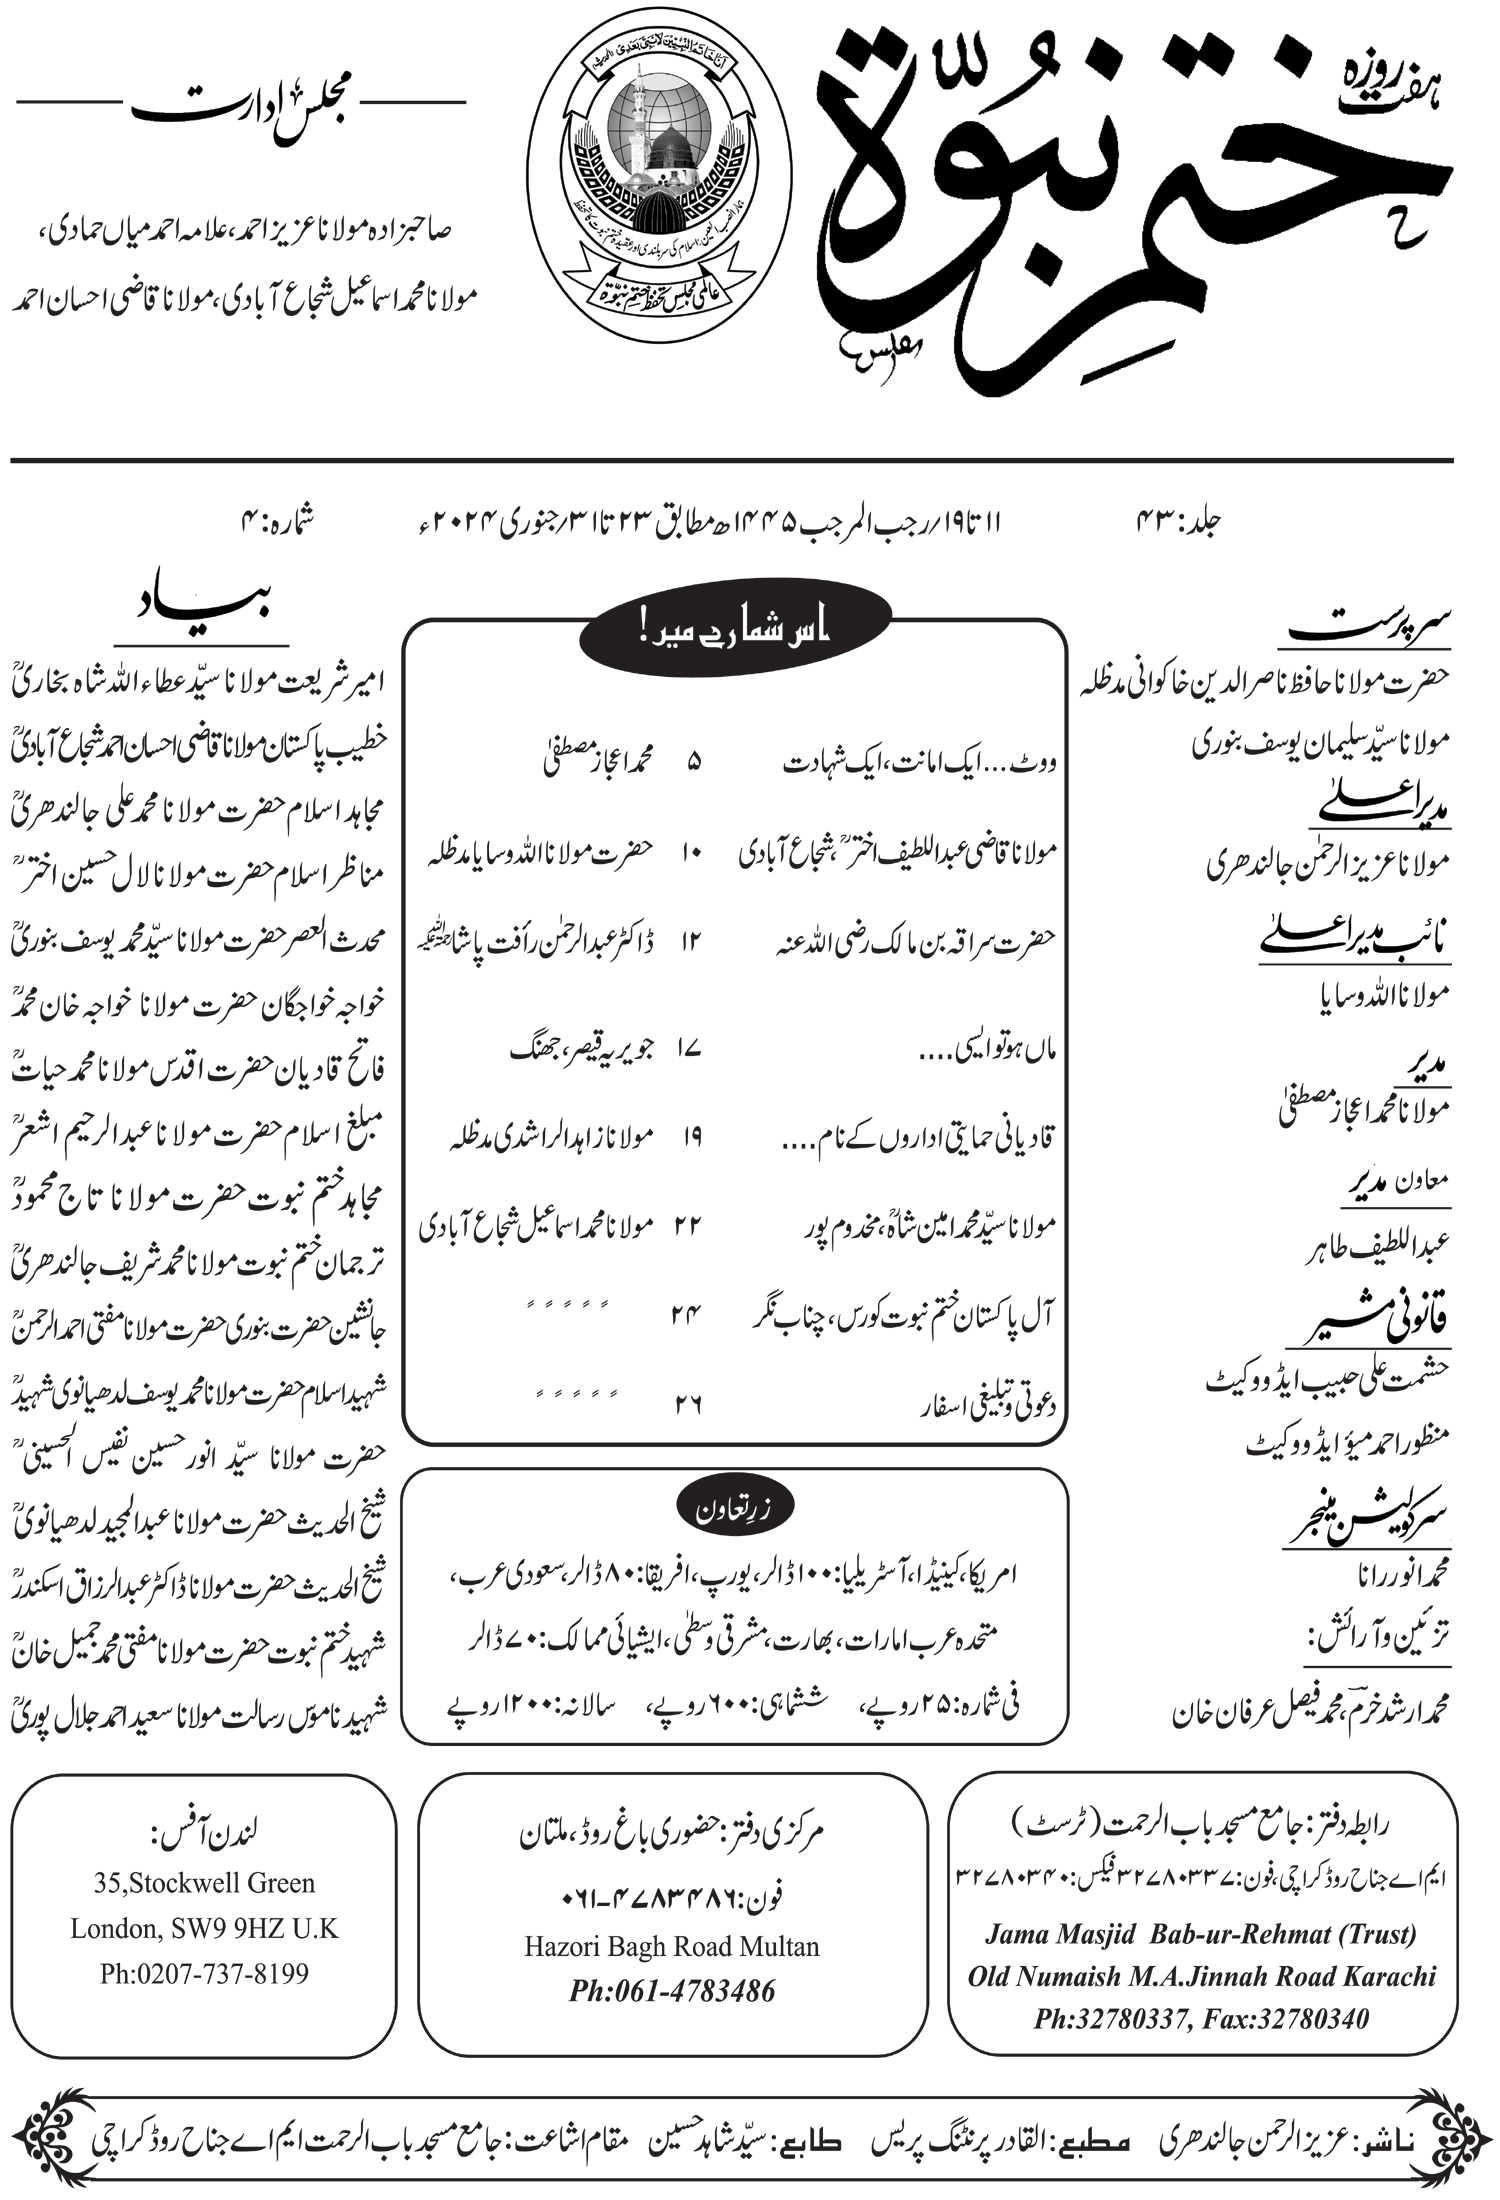 ہفت روزہ
ختم نبوّۃ
مجلس
اَنَا خَاتَمُ النَّبِیّٖنَ لَا نَبِیَّ بَعْدِی
عالمی مجلس تحفظ ختم نبوّۃ
مجلس ادارت
صاحبزادہ مولانا عزیز احمد، علامہ احمد میاں حمادی،
مولانا محمد اسماعیل شجاع آبادی، مولانا قاضی احسان احمد
جلد: ۴۳ ۱۱ تا ۱۹؍رجب المرجب ۱۴۴۵ھ مطابق ۲۳ تا ۳۱؍جنوری ۲۰۲۴ء شمارہ: ۴
سرپرست
حضرت مولانا حافظ ناصر الدین خاکوانی مدظلہ
مولانا سیّد سلیمان یوسف بنوری
مدیر اعلیٰ
مولانا عزیز الرحمٰن جالندھری
نائب مدیر اعلیٰ
مولانا اللہ وسایا
مدیر
مولانا محمد اعجاز مصطفیٰ
معاون مدیر
عبداللطیف طاہر
قانونی مشیر
حشمت علی حبیب ایڈووکیٹ
منظور احمد میؤ ایڈووکیٹ
سرکولیشن مینجر
محمد انور رانا
تزئین و آرائش:
محمد ارشد خرم، محمد فیصل عرفان خان
اس شمارے میں!
ووٹ... ایک امانت، ایک شہادت ۵ محمد اعجاز مصطفیٰ
مولانا قاضی عبداللطیف اخترؒ، شجاع آبادی ۱۰ حضرت مولانا اللہ وسایا مدظلہ
حضرت سراقہ بن مالک رضی اللہ عنہ ۱۲ ڈاکٹر عبدالرحمٰن رأفت پاشا رحمۃ اللہ علیہ
ماں ہو تو ایسی.... ۱۷ جویریہ قیصر، جھنگ
قادیانی حمایتی اداروں کے نام.... ۱۹ مولانا زاہد الراشدی مدظلہ
مولانا سیّد محمد امین شاہؒ، مخدوم پور ۲۲ مولانا محمد اسماعیل شجاع آبادی
آل پاکستان ختم نبوت کورس، چناب نگر ۲۴ ؍ ؍ ؍ ؍ ؍
دعوتی و تبلیغی اسفار ۲۶ ؍ ؍ ؍ ؍ ؍
زرِتعاون
امریکا، کینیڈا، آسٹریلیا: ۱۰۰ ڈالر، یورپ، افریقا: ۸۰ ڈالر، سعودی عرب،
متحدہ عرب امارات، بھارت، مشرقی وسطیٰ، ایشیائی ممالک: ۷۰ ڈالر
فی شمارہ: ۲۵ روپے، ششماہی: ۶۰۰ روپے، سالانہ: ۱۲۰۰ روپے
بیاد
امیر شریعت مولانا سیّد عطاء اللہ شاہ بخاریؒ
خطیب پاکستان مولانا قاضی احسان احمد شجاع آبادیؒ
مجاہد اسلام حضرت مولانا محمد علی جالندھریؒ
مناظر اسلام حضرت مولانا لال حسین اخترؒ
محدث العصر حضرت مولانا سیّد محمد یوسف بنوریؒ
خواجہ خواجگان حضرت مولانا خواجہ خان محمدؒ
فاتح قادیان حضرت اقدس مولانا محمد حیاتؒ
مبلغ اسلام حضرت مولانا عبدالرحیم اشعرؒ
مجاہد ختم نبوت حضرت مولانا تاج محمودؒ
ترجمان ختم نبوت مولانا محمد شریف جالندھریؒ
جانشین حضرت بنوری حضرت مولانا مفتی احمد الرحمٰنؒ
شہید اسلام حضرت مولانا محمد یوسف لدھیانوی شہیدؒ
حضرت مولانا سیّد انور حسین نفیس الحسینیؒ
شیخ الحدیث حضرت مولانا عبدالمجید لدھیانویؒ
شیخ الحدیث حضرت مولانا ڈاکٹر عبدالرزاق اسکندرؒ
شہید ختم نبوت حضرت مولانا مفتی محمد جمیل خانؒ
شہید ناموس رسالت مولانا سعید احمد جلال پوریؒ
رابطہ دفتر: جامع مسجد باب الرحمت (ٹرسٹ)
ایم اے جناح روڈ کراچی، فون: ۳۲۷۸۰۳۳۷ فیکس: ۳۲۷۸۰۳۴۰
Jama Masjid Bab-ur-Rehmat (Trust)
Old Numaish M.A.Jinnah Road Karachi
Ph:32780337, Fax:32780340
مرکزی دفتر: حضوری باغ روڈ، ملتان
فون: ۰۶۱-۴۷۸۳۴۸۶
Hazori Bagh Road Multan
Ph:061-4783486
لندن آفس:
35,Stockwell Green
London, SW9 9HZ U.K
Ph:0207-737-8199
ناشر: عزیز الرحمن جالندھری مطبع: القادر پرنٹنگ پریس طابع: سیّد شاہد حسین مقام اشاعت: جامع مسجد باب الرحمت ایم اے جناح روڈ کراچی